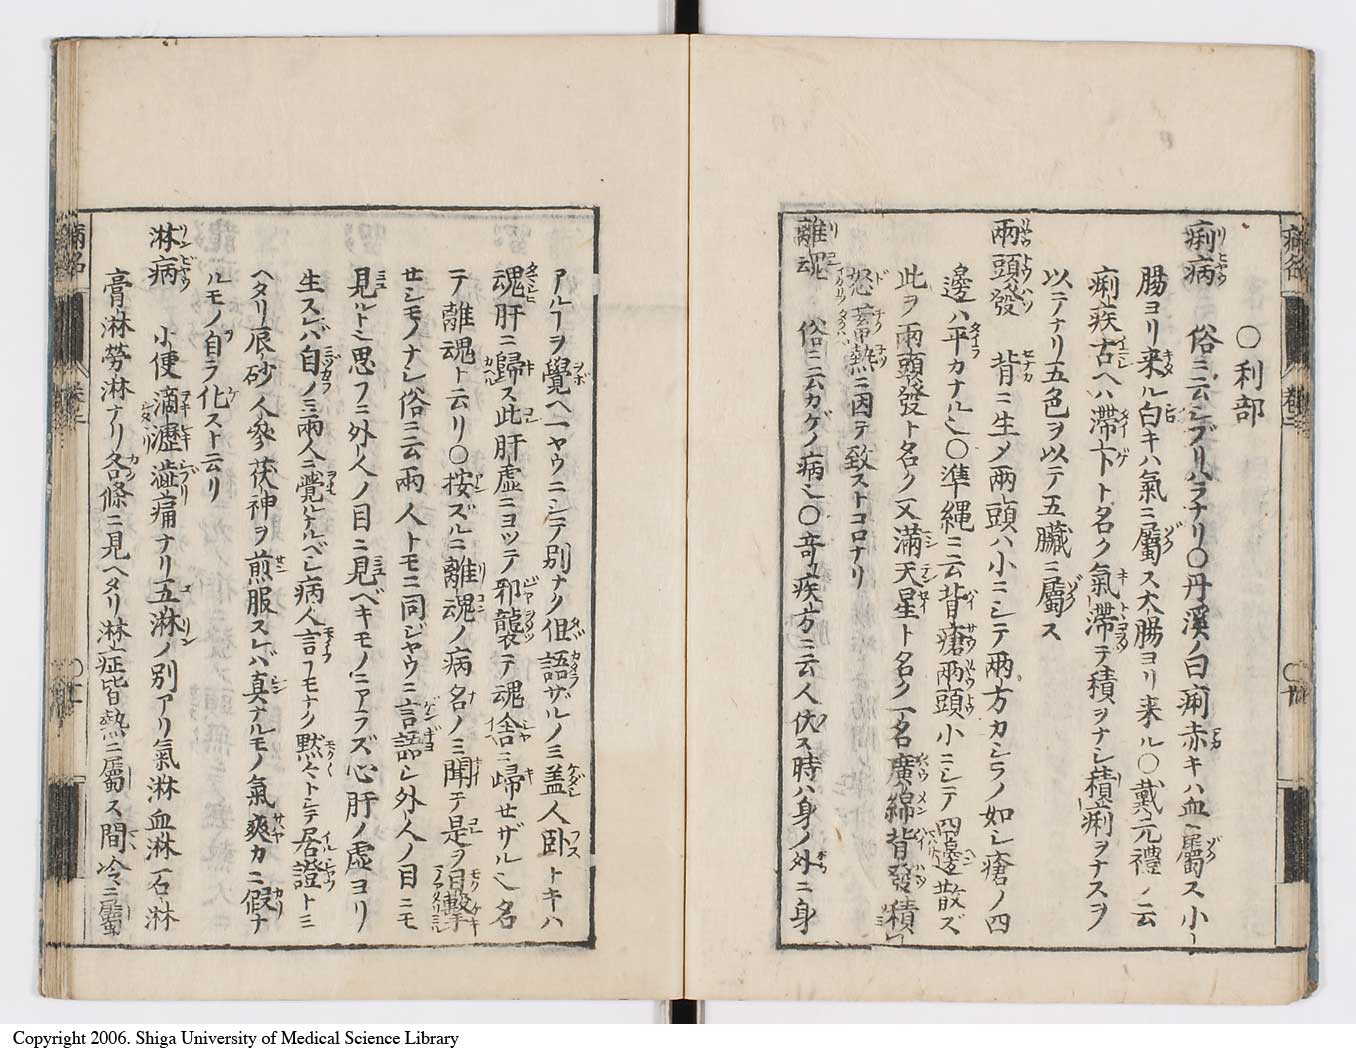 ○利部
痢病 俗ニ云シブリハラナリ○丹溪ノ曰痢赤キハ血ニ屬ス小
腸ヨリ来ル白キハ氣ニ屬ス大腸ヨリ来ル○戴元禮ノ云
痢疾古ヘハ滯下ト名ク氣滯テ積ヲナシ積痢ヲナスヲ
以テナリ五色ヲ以テ五臟ニ屬ス
兩頭發 背ニ生メ兩頭ハ小ニシテ兩方カシラノ如シ瘡ノ四
邊ハ平カナル也○準縄ニ云背瘡兩頭小ニシテ四邊散ズ
此ヲ兩頭發ト名ク又滿天星ト名ク一名廣綿背發積
怒蓄熱ニ因テ致ストコロナリ
離魂 俗ニ云カゲノ病也○奇疾方ニ云人伏ス時ハ身ノ外ニ身
アルヿヲ覺ヘ一ヤウニシテ別ナク但語ザルノミ盖人卧トキハ
魂肝ニ歸ス此肝虚ニヨツテ邪襲テ魂舎ニ歸せザル也名
テ離魂ト云リ○按ズルニ離魂ノ病名ノミ聞テ是ヲ目擊
せシモノナシ俗ニ云兩人トモニ同ジヤウニ言語シ外人ノ目ニモ
見ルトミ思フニ外人ノ目ニ見ベキモノニアラズ心肝ノ虚ヨリ
生スレバ自ノミ兩人ニ覺ルナルベシ病人言フモナク黙々トシテ居證トミ
ヘタリ辰砂人參茯神ヲ煎服スレバ真ナルモノ氣爽カニ假ナ
ルモノ自ラ化スト云リ
淋病 小便滴瀝澁痛ナリ五淋ノ別アリ氣淋血淋石淋
膏淋勞淋ナリ各條ニ見ヘタリ淋症皆熱ニ屬ス間冷ニ屬
Copyright 2006. Shiga University of Medical Science Library